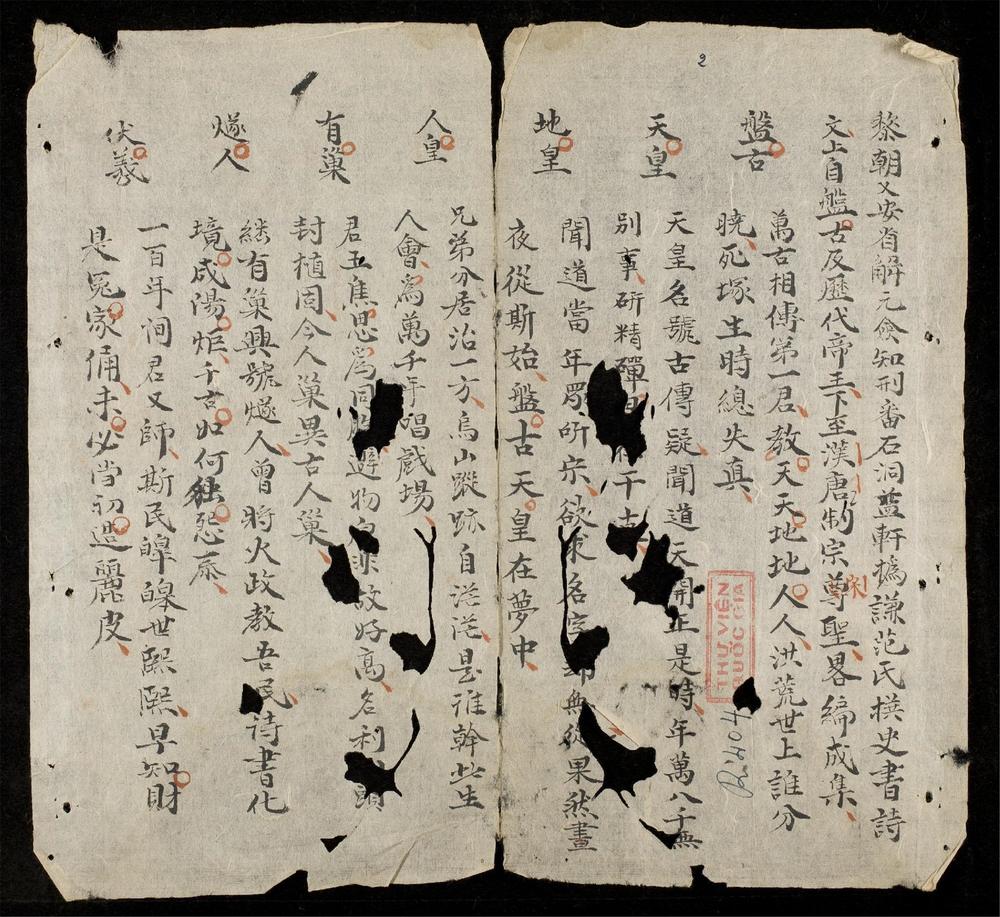 2
黎朝乂安省解元僉知刑番石洞盐軒撝謙范氏撰史書詩
文上自盤古及歷代帝王下至漢唐制宗尊聖畧編成集
宋
盤古
萬古相傳第一君教天天地地人人洪荒世上誰分
曉死塚生時總失真
天皇
天皇名號古傳疑聞道天開正是時年萬八千無
別事研精殫 千古
地皇
聞道當年眾所宗欲求名字 無從果然晝
夜從斯始盤古天皇在夢中
人皇
兄弟分居治一方烏山蹤跡自茫茫是誰幹此生
人會為萬千年唱戲場
有巢
君王焦思爲同胞避物 故好高名利 頭
封植固今人巢異古人巢
燧人
継有巢興號燧人曾將火政教吾民詩書化
境咸陽炬千古如何独怨秦
伏羲
一百年間君又師斯民皥皥世熙熙早知財
是冤家俑未必當初造麗皮
THƯ VIỆN
QUỐC GIA
R.1404